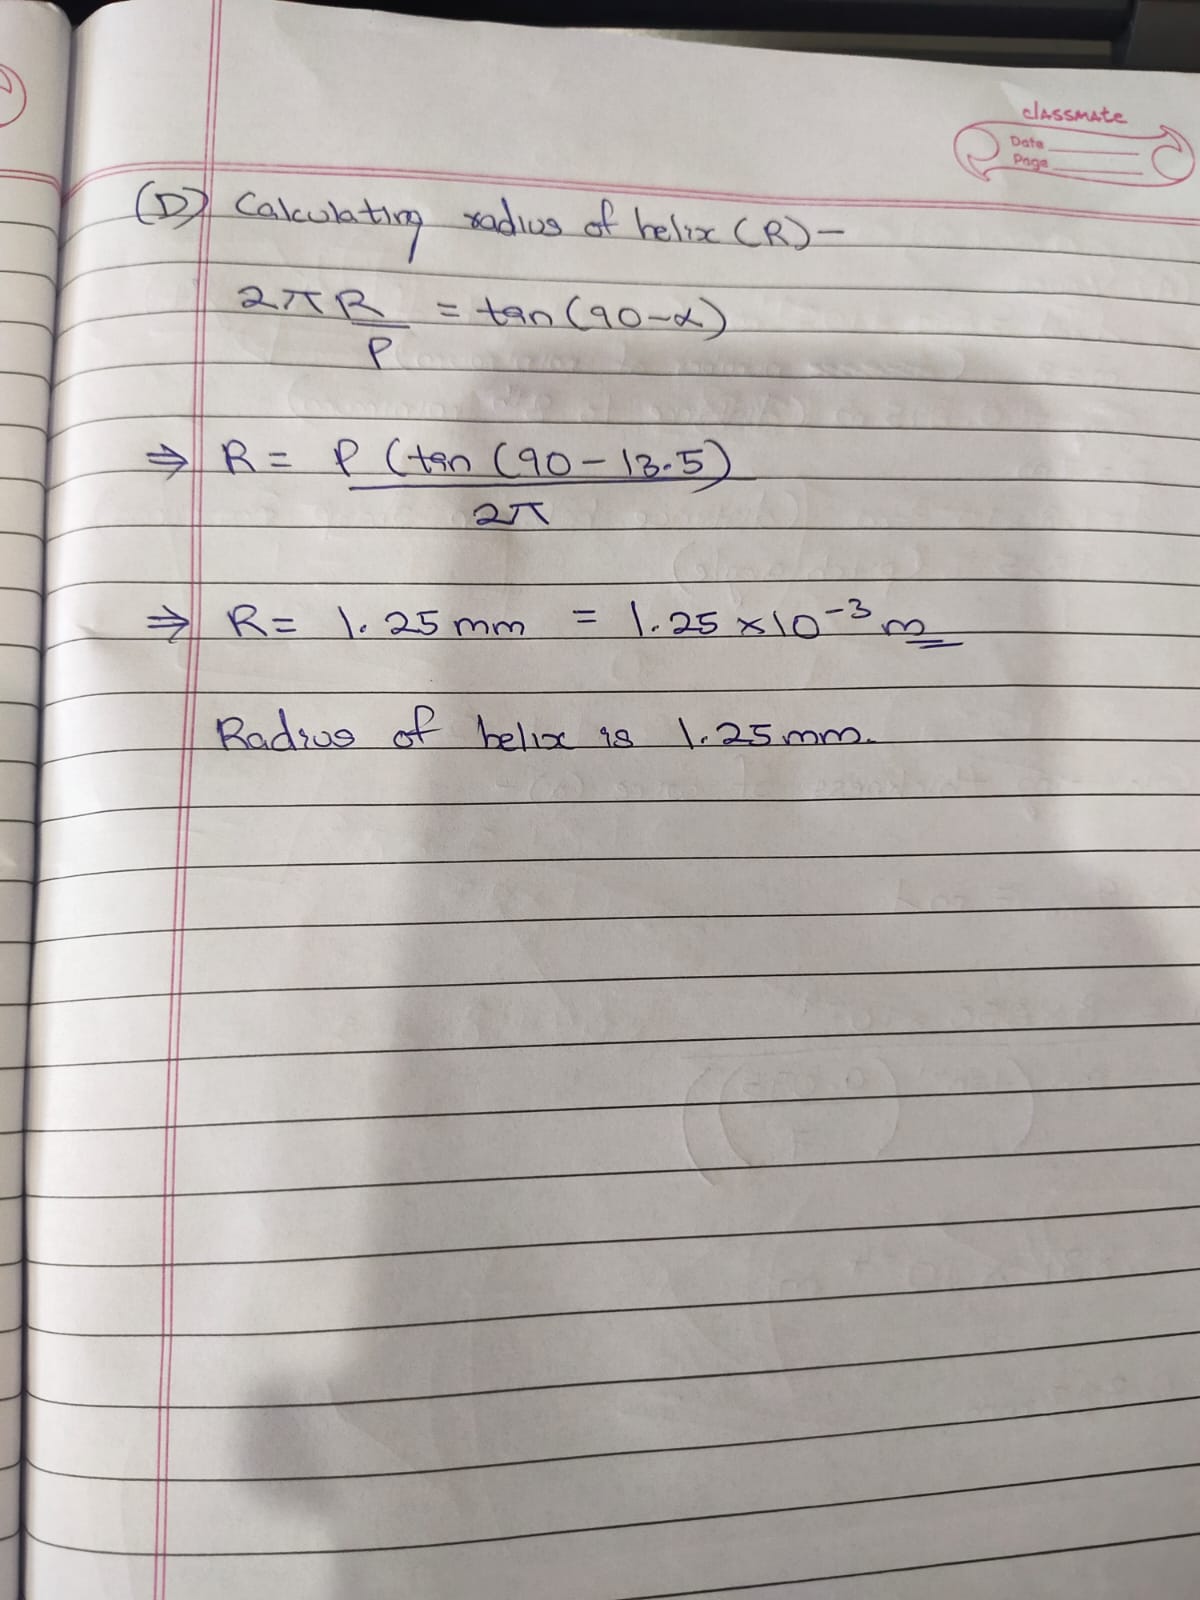 classmate
Date
Page
(D) Calculating radius of helix (R) –
2πR / P = tan (90-α)
⇒ R = P (tan (90 - 13.5) / 2π
⇒ R = 1.25 mm = 1.25 × 10⁻³ m
Radius of helix is 1.25 mm.